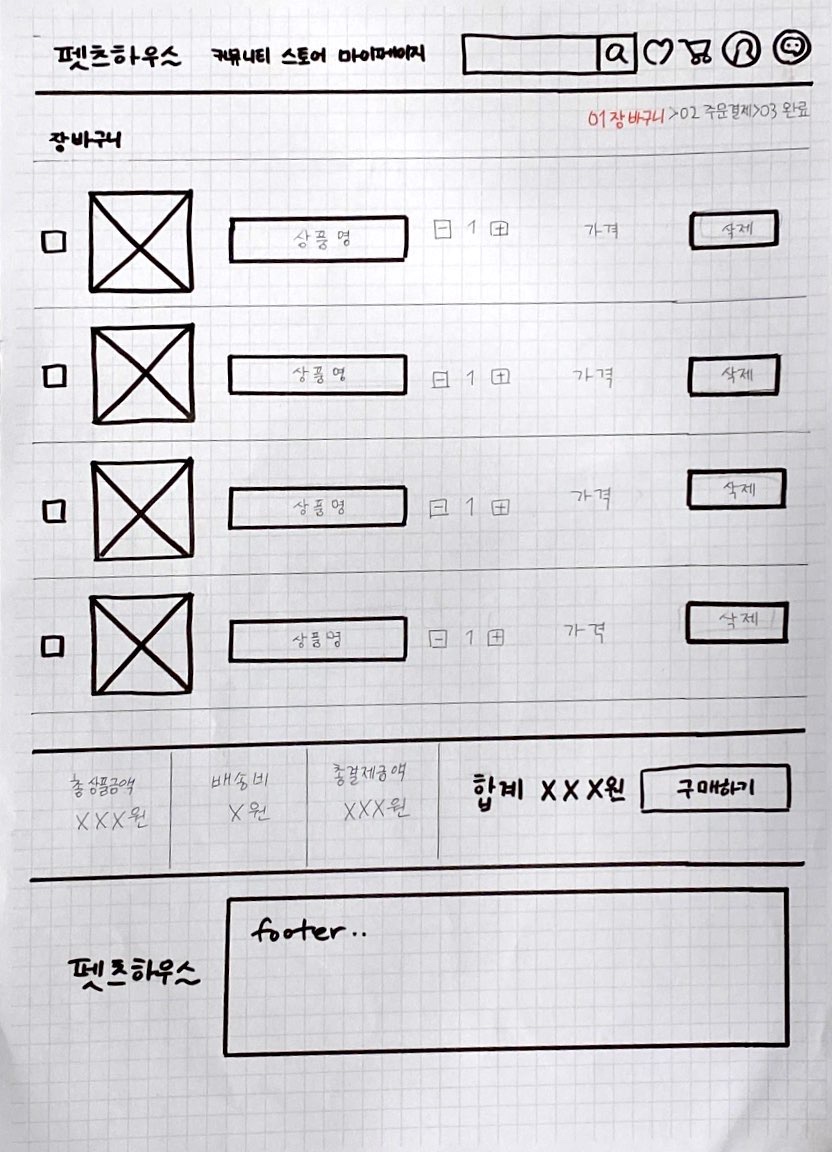 펫츠하우스 커뮤니티 스토어 마이페이지
01 장바구니 >02 주문결제>03 완료
장바구니
상품명 - 1 + 가격 삭제
상품명 - 1 + 가격 삭제
상품명 - 1 + 가격 삭제
상품명 - 1 + 가격 삭제
총 상품금액 배송비 총결제금액
XXX원 X원 XXX원
합계 XXX원 구매하기
footer..
펫츠하우스